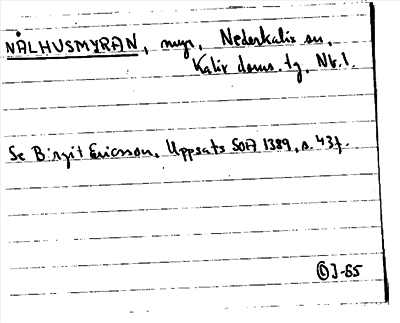 NÅLHUSMYRAN, myr, Nederkalix sn,
Kalix doms. tg, Nb. l.
Se Birgit Ericsson, Uppsats SOA 1389, s. 43f.
J-85